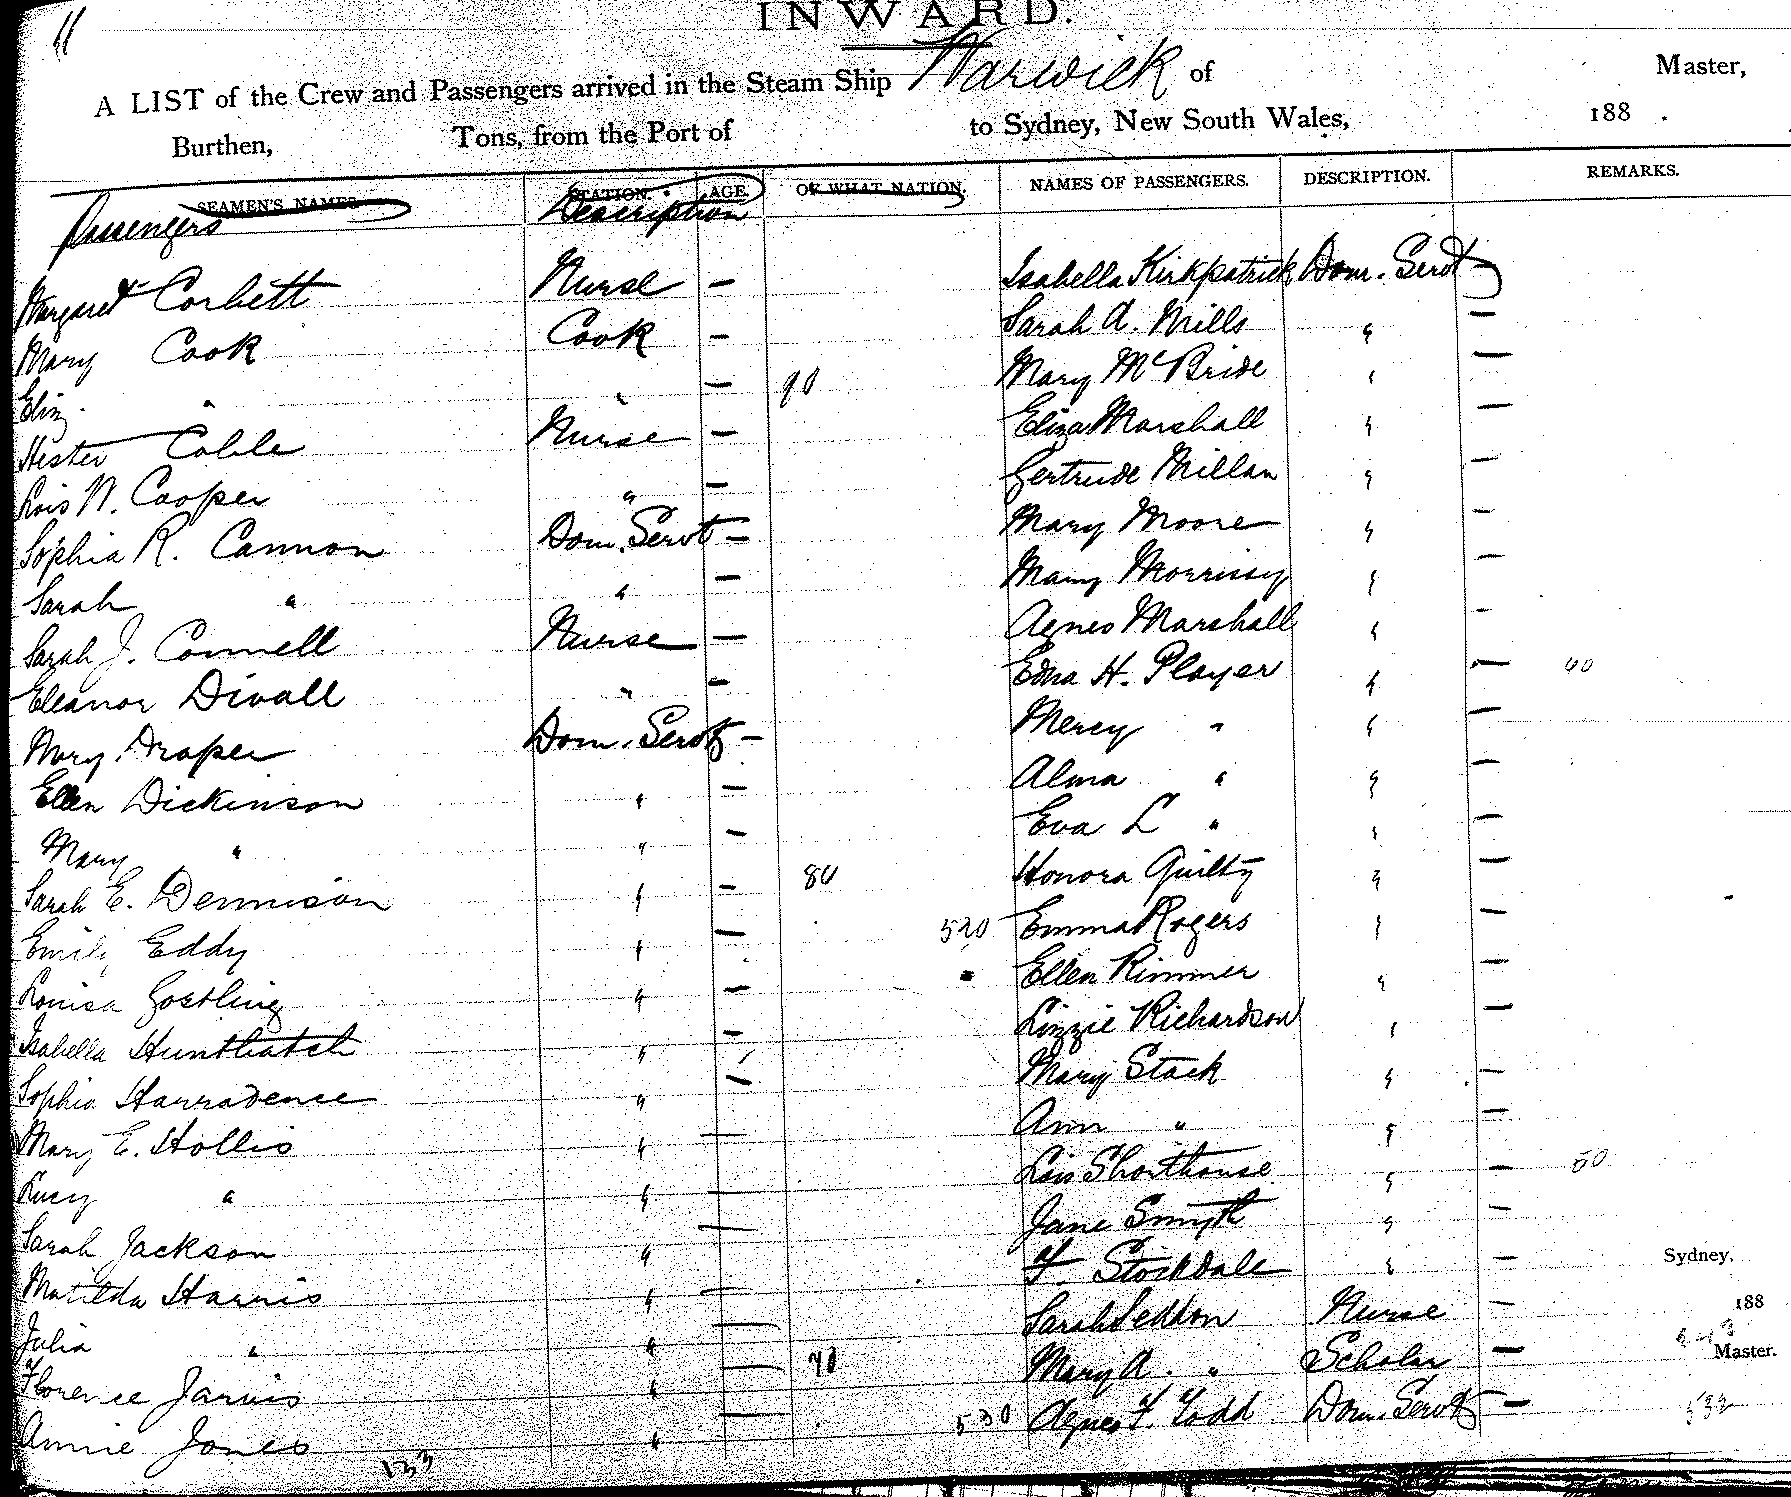 11
INWARD.
A LIST of the Crew and Passengers arrived in the Steam Ship Warwick of Master,
Burthen, Tons, from the Port of to Sydney, New South Wales, 188 .
SEAMEN'S NAMES. STATION. AGE. OF WHAT NATION. NAMES OF PASSENGERS. DESCRIPTION. REMARKS.
Passengers Description
Margaret Corbett Nurse — Isabella Kirkpatrick Dom. Servt —
Mary Cook Cook — Sarah A. Mills " —
Eliz. " " — 90 Mary McBride " —
Hester Coble Nurse — Eliza Marshall " —
Lois W. Cooper " — Gertrude Millan " —
Sophia R. Cannon Dom. Servt — Mary Moore " —
Sarah " " — Mary Morrissy " —
Sarah J. Connell Nurse — Agnes Marshall " —
Eleanor Divall " — Edna H. Player " — 40
Mary Draper Dom. Servt — Mercy " " —
Ellen Dickinson " — Alma " " —
Mary " " — Eva L " " —
Sarah E. Dennison " — 80 Honora Guilty " —
Emily Eddy " — 520 Emma Rogers " —
Louisa Gostling " — Ellen Rimmer " —
Isabella Hunthatch " — Lizzie Richardson " —
Sophia Harradence " — Mary Stack " —
Mary E. Hollis " — Ann " " —
Lucy " " — Lois Shorthouse " — 50
Sarah Jackson " — Jane Smyth " —
Matilda Harris " — F. Stockdale " — Sydney,
Julia " " — Sarah Seddon Nurse — 188
Florence Jarvis " — 70 Mary A. " Scholar — Master.
Annie Jones " — 530 Agnes F. Todd Dom. Servt — 532
133